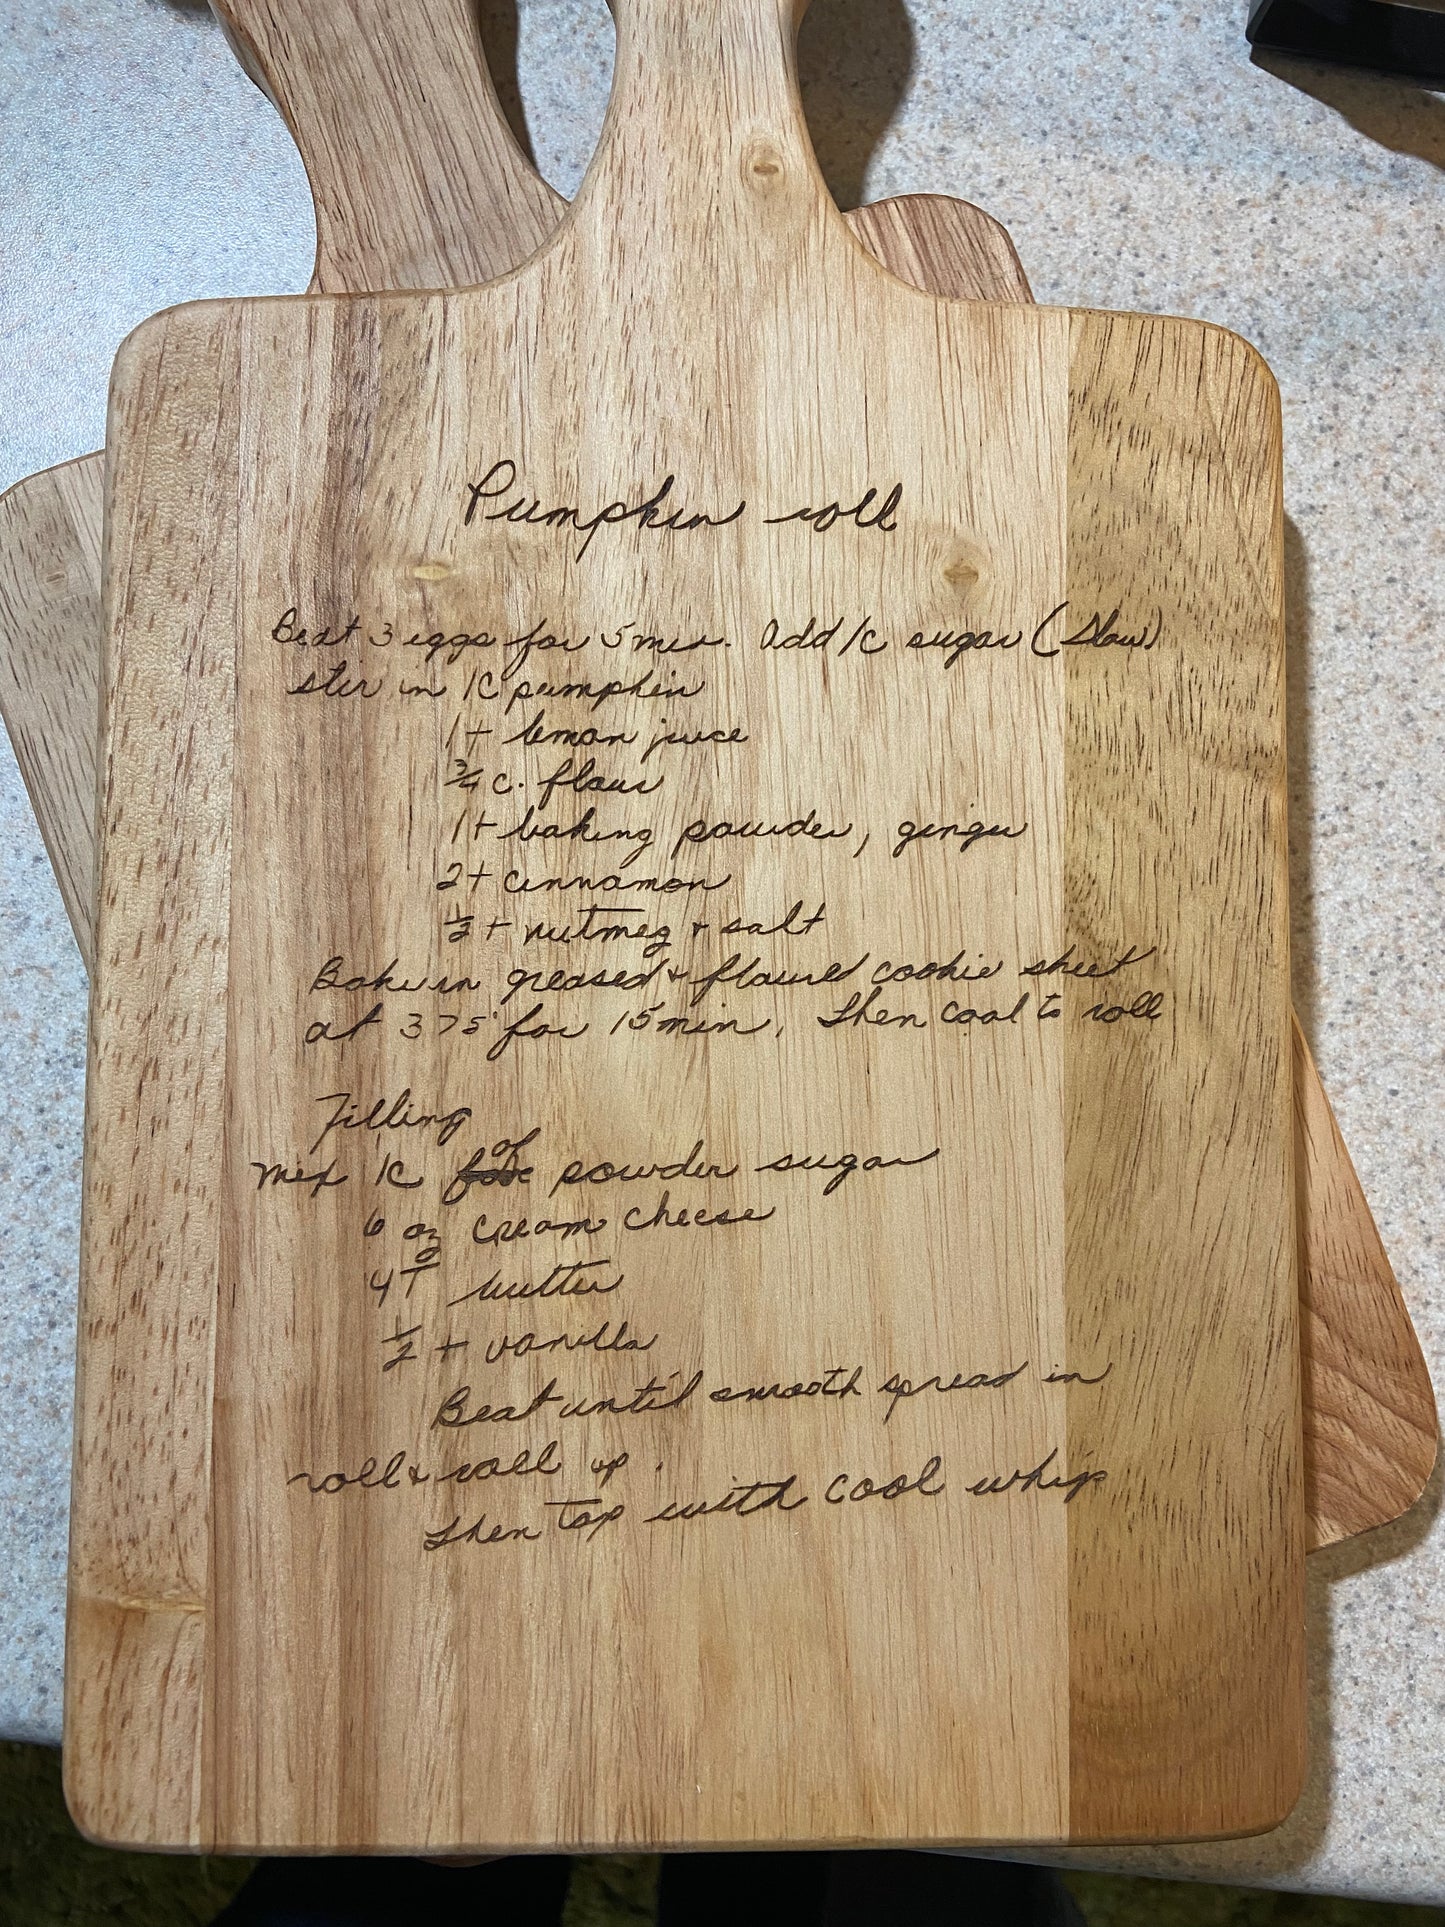 Pumpkin roll
Beat 3 eggs for 5 min. Add 1c sugar (Slow)
stir in 1c pumpkin
1t lemon juice
3/4 c. flour
1t baking powder, ginger
2t cinnamon
1/2 t nutmeg + salt
Bake in greased + floured cookie sheet
at 375° for 15 min, then cool to roll
Filling
mix 1c of powder sugar
6 oz cream cheese
4T butter
1/2 t vanilla
Beat until smooth spread in
roll + roll up.
then top with cool whip